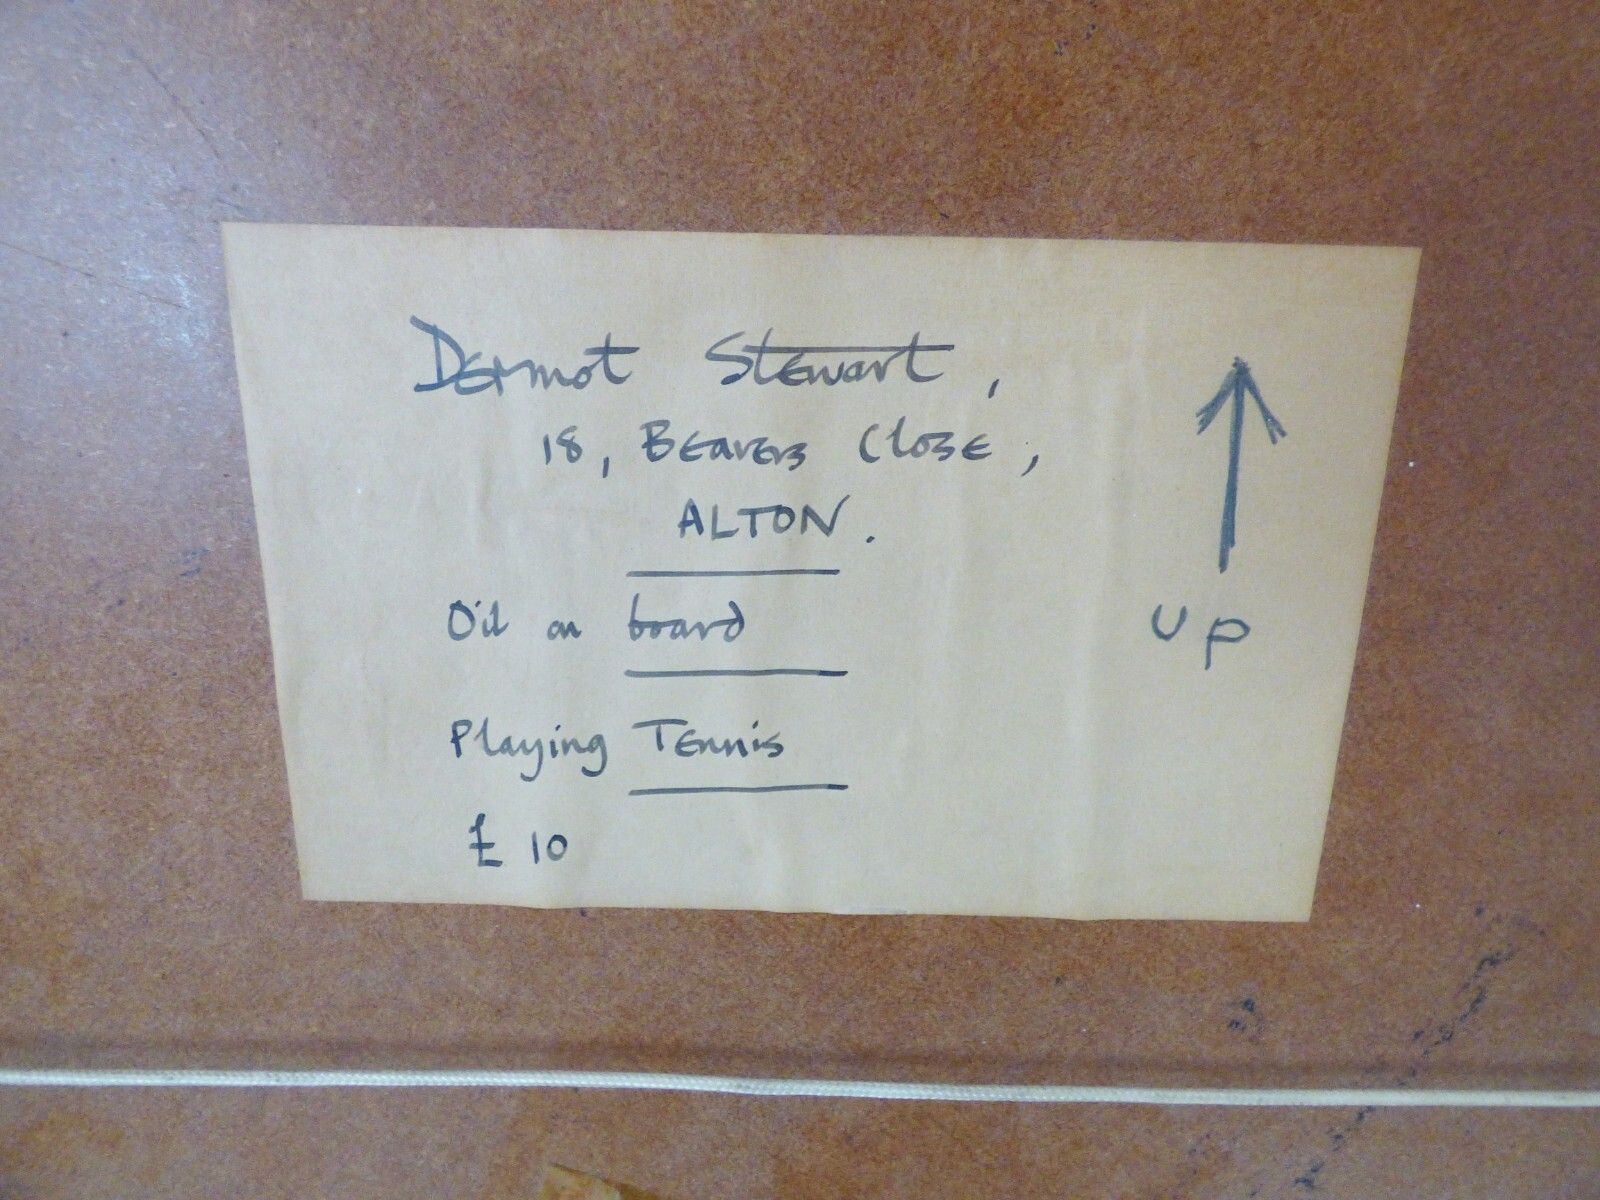 Dermot Stewart,
18, Beavers Close,
ALTON.
Oil on board
Playing Tennis
£10
UP